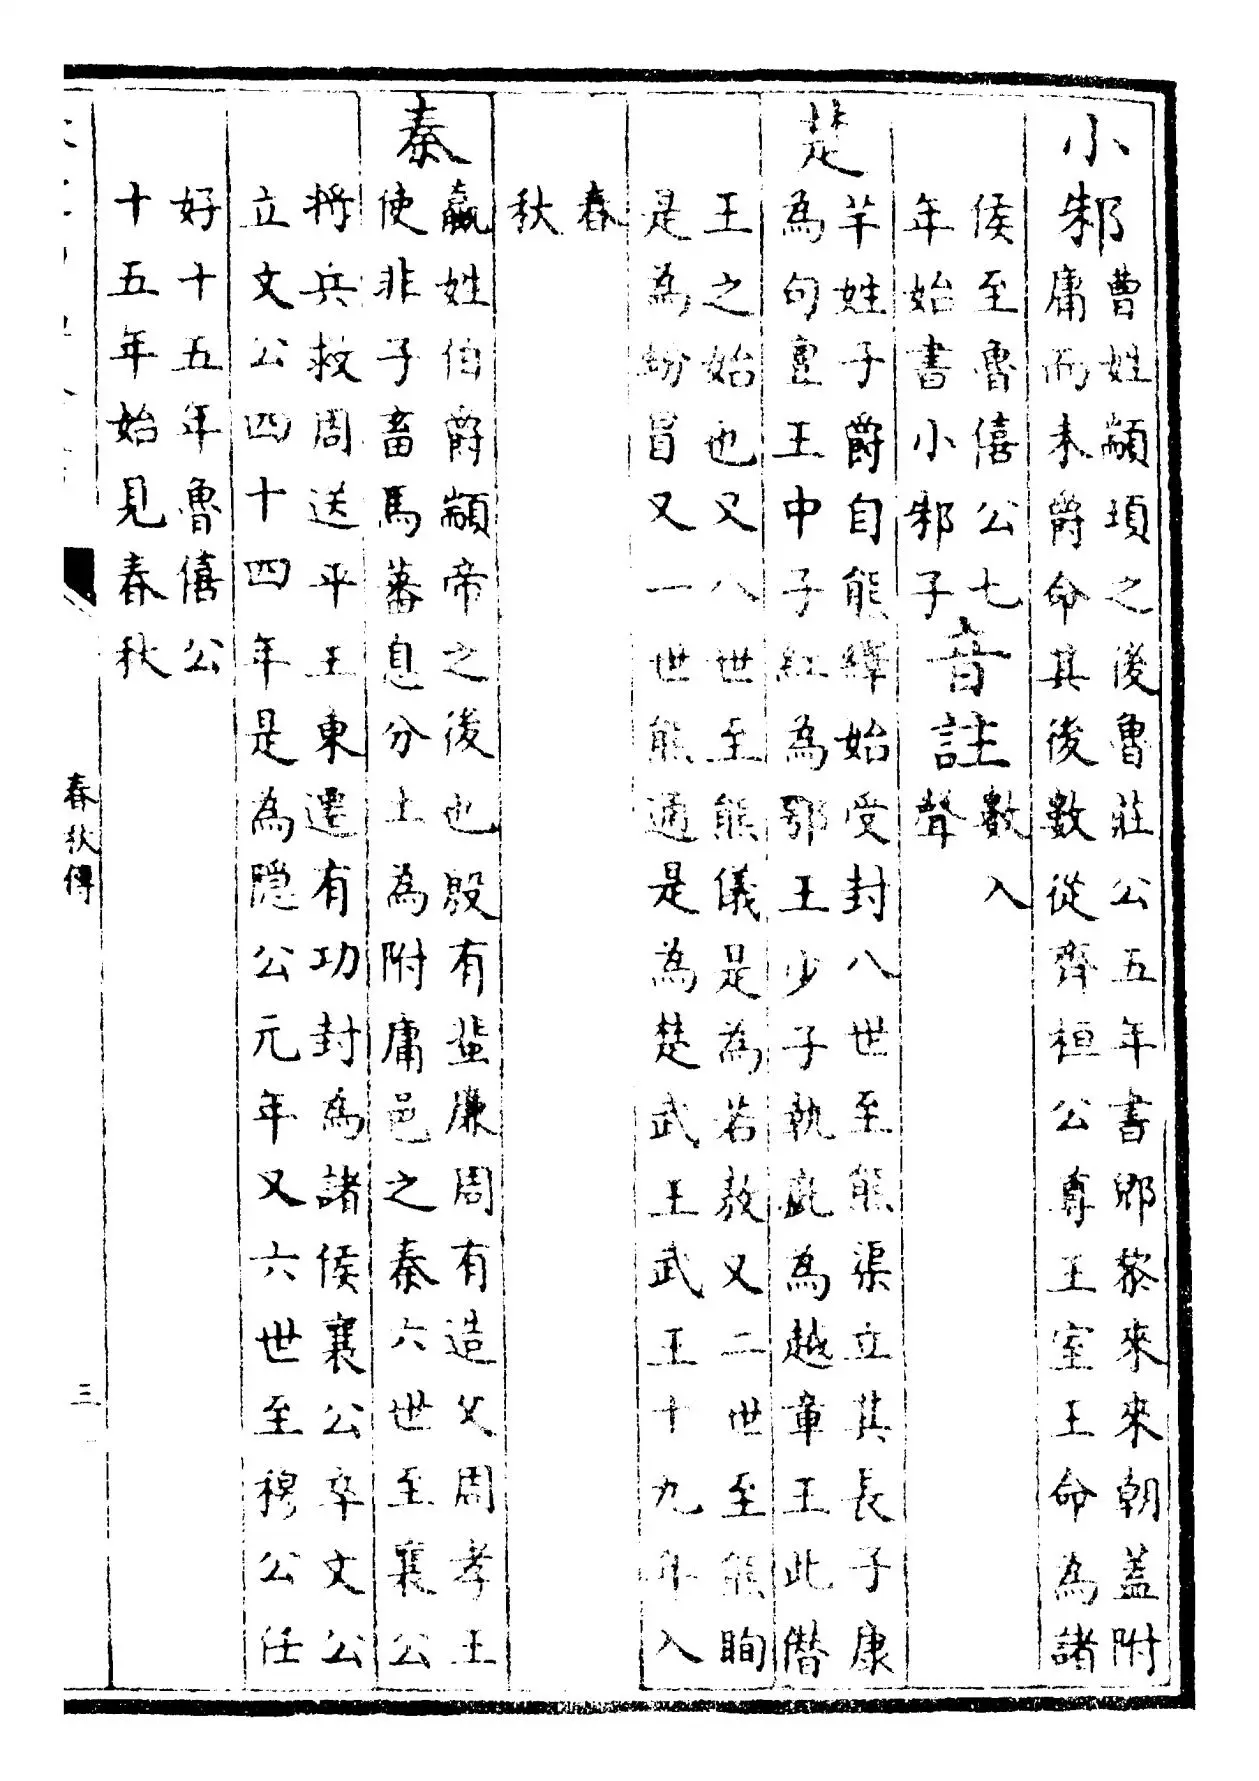 小邾
曹姓顓頊之後魯莊公五年書郳黎來來朝蓋附
庸而未爵命其後數從齊桓公尊王室王命為諸
侯至魯僖公七
年始書小邾子
音註
數入
聲
楚
芊姓子爵自熊繹始受封八世至熊渠立其長子康
為句亶王中子紅為鄂王少子執疵為越章王此僭
王之始也又八世至熊儀是為若敖又二世至熊眴
是為蚡冒又一世熊通是為楚武王武王十九年入
春
秋
秦
嬴姓伯爵顓帝之後也殷有蜚廉周有造父周孝王
使非子畜馬蕃息分土為附庸邑之秦六世至襄公
將兵救周送平王東遷有功封為諸侯襄公卒文公
立文公四十四年是為隱公元年又六世至穆公任
好十五年魯僖公
十五年始見春秋
春秋傳
三